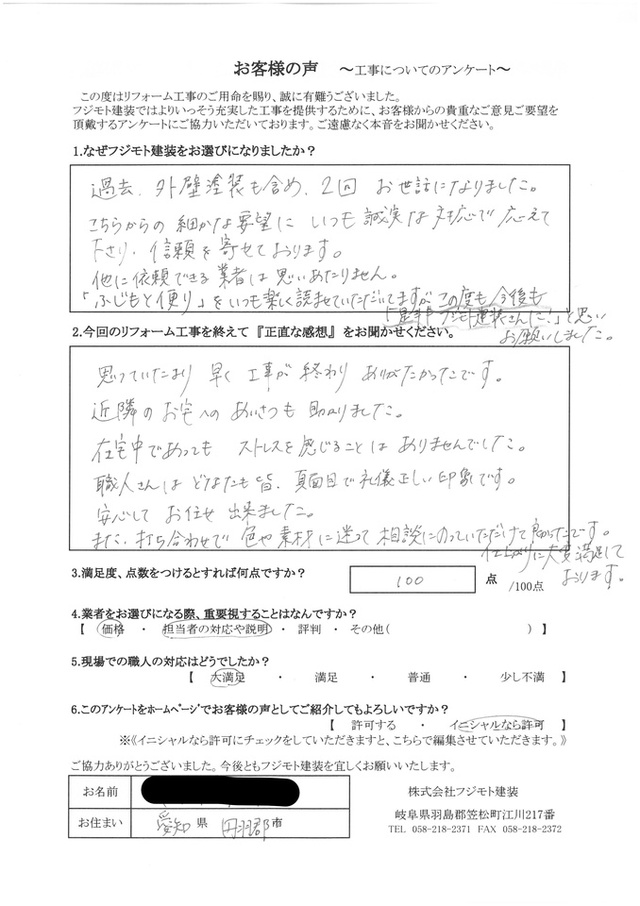 お客様の声　～工事についてのアンケート～
この度はリフォーム工事のご用命を賜り、誠に有難うございました。
フジモト建装ではよりいっそう充実した工事を提供するために、お客様からの貴重なご意見ご要望を
頂戴するアンケートにご協力いただいております。ご遠慮なく本音をお聞かせください。
1.なぜフジモト建装をお選びになりましたか？
過去、外壁塗装も含め、2回 お世話になりました。
こちらからの細かな要望に いつも誠実な対応で 応えて
下さり、信頼を寄せております。
他に依頼できる業者は思いあたりません。
「ふじもと便り」をいつも楽しく読ませていただいてますが この度も今後も
「是非フジモト建装さんに!」と思い
お願いしました。
2.今回のリフォーム工事を終えて『正直な感想』をお聞かせください。
思っていたより 早く 工事が 終わり ありがたかったです。
近隣のお宅へのあいさつも 助かりました。
在宅中であっても ストレスを感じることは ありませんでした。
職人さんは どなたも皆、真面目で礼儀正しい印象です。
安心して お任せ 出来ました。
また、打ち合わせで 色や素材に迷って 相談にのっていただけて良かったです。
仕上がりに大変満足して
おります。
3.満足度、点数をつけるとすれば何点ですか？　100　点　/100点
4.業者をお選びになる際、重要視することはなんですか？
【　価格　・　担当者の対応や説明　・　評判　・　その他(　　　　　　　　)　】
5.現場での職人の対応はどうでしたか？
【　大満足　・　満足　・　普通　・　少し不満　】
6.このアンケートをホームページでお客様の声としてご紹介してもよろしいですか？
【　許可する　・　イニシャルなら許可　】
※《イニシャルなら許可にチェックをしていただきますと、こちらで編集させていただきます。》
ご協力ありがとうございました。今後ともフジモト建装を宜しくお願いいたします。
お名前
お住まい　愛知 県　丹羽郡 市
株式会社フジモト建装
岐阜県羽島郡笠松町江川217番
TEL 058-218-2371 FAX 058-218-2372